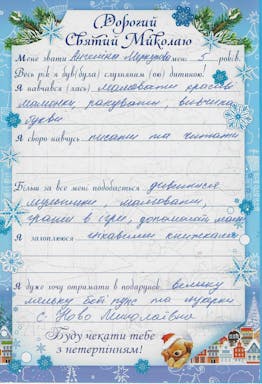 Дорогий
Святий Миколаю
Мене звати Ангеліна мені 5 років.
Весь рік я був(була) слухняним (ою) дитиною.
Я навчався (лась) малювати красиві
малюнки, рахувати, вивчила
букви
Я скоро навчусь писати та читати
Більш за все мені подобається дивитися
мультики, малювати,
грати в ігри, допомагати мамі
Я захоплююся цікавими книжками
Я дуже хочу отримати в подарунок велику
ляльку бебі пупс та цукерки
с. Ново Миколаївка
Буду чекати тебе
з нетерпінням!